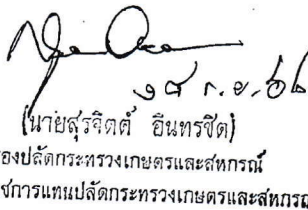 ๑๘ ก.ย. ๖๒
(นายสุรจิตต์ อินทรชิต)
องปลัดกระทรวงเกษตรและสหกรณ์
ชการแทนปลัดกระทรวงเกษตรและสหกรณ์